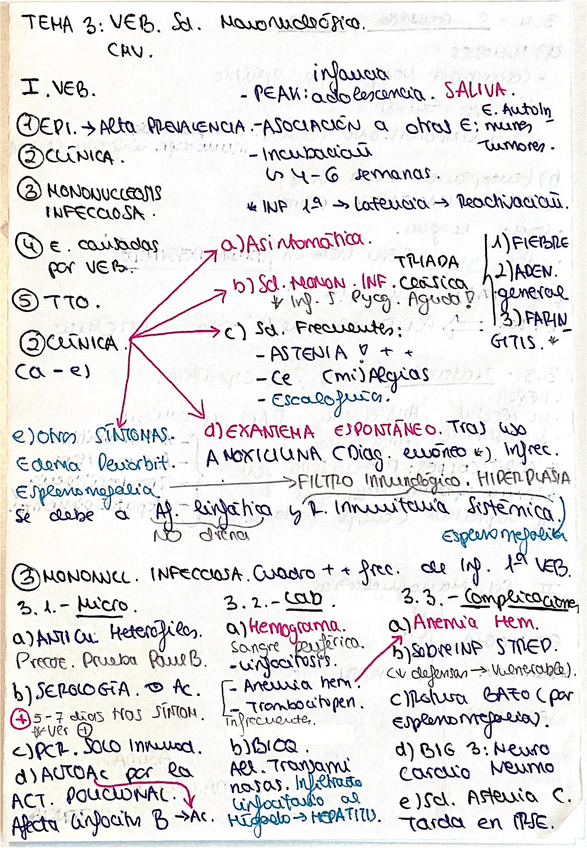 TEMA 3: VEB. Sd. Mononucleósico.
CMV.
I. VEB.
infancia
- PEAK: adolescencia. SALIVA.
① EPI. → Alta PREVALENCIA. - ASOCIACIÓN a otras E: E. AutoIn
munes
Tumores.
② CLÍNICA.
- Incubación
↳ 4-6 semanas.
③ MONONUCLEOSIS
INFECCIOSA.
* INF 1ª → Latencia → Reactivación.
④ E. causadas
por VEB.
⑤ TTO.
② CLÍNICA.
(a - e)
a) Asintomática.
b) Sd. MONON. INF. clásica
* Inf. S. Agudo!
TRIADA
1) FIEBRE
2) ADEN.
general
3) FARIN
GITIS. *
c) Sd. Frecuentes:
- ASTENIA ! + +
- Ce (mi) Algias
- Escalofría.
e) otros SÍNTOMAS.
Edema Periorbit.
Esplenomegalia
d) EXANTEMA ESPONTÁNEO. Tras uso
AMOXICILINA (Diag. erróneo *). Infrec.
→ FILTRO Inmunológico. HIPERPLASIA
Se debe a Af. linfática y R. Inmunitaria Sistémica.
NO drena
Esplenomegalia
③ MONONUCL. INFECCIOSA. Cuadro + + frec. de Inf. 1ª VEB.
3.1.- Micro.
a) ANTICU. Heterófilos.
Precoz. Prueba Paul B.
b) SEROLOGÍA. Ac.
⊕ 5-7 días tras SÍNTOM.
* Ver ⊕
c) PCR. SOLO Inmunod.
d) AUTOAc por la
ACT. POLICLONAL.
Afecta linfocitos B → Ac.
3.2.- Lab
a) Hemograma.
sangre periférica.
- Linfocitosis.
- Anemia hem.
- Trombocitopen.
Infrecuentes.
b) BIOQ.
Alt. Transami
nasas. Infiltrado
linfocitario al
Hígado → HEPATITIS.
3.3.- Complicaciones
a) Anemia Hem.
b) SobreINF STREP.
(↓ defensas → Vulnerable).
c) Rotura BAZO (por
Esplenomegalia).
d) BIG 3: Neuro
Cardio Neumo
e) Sd. Astenia C.
Tarda en IRSE.